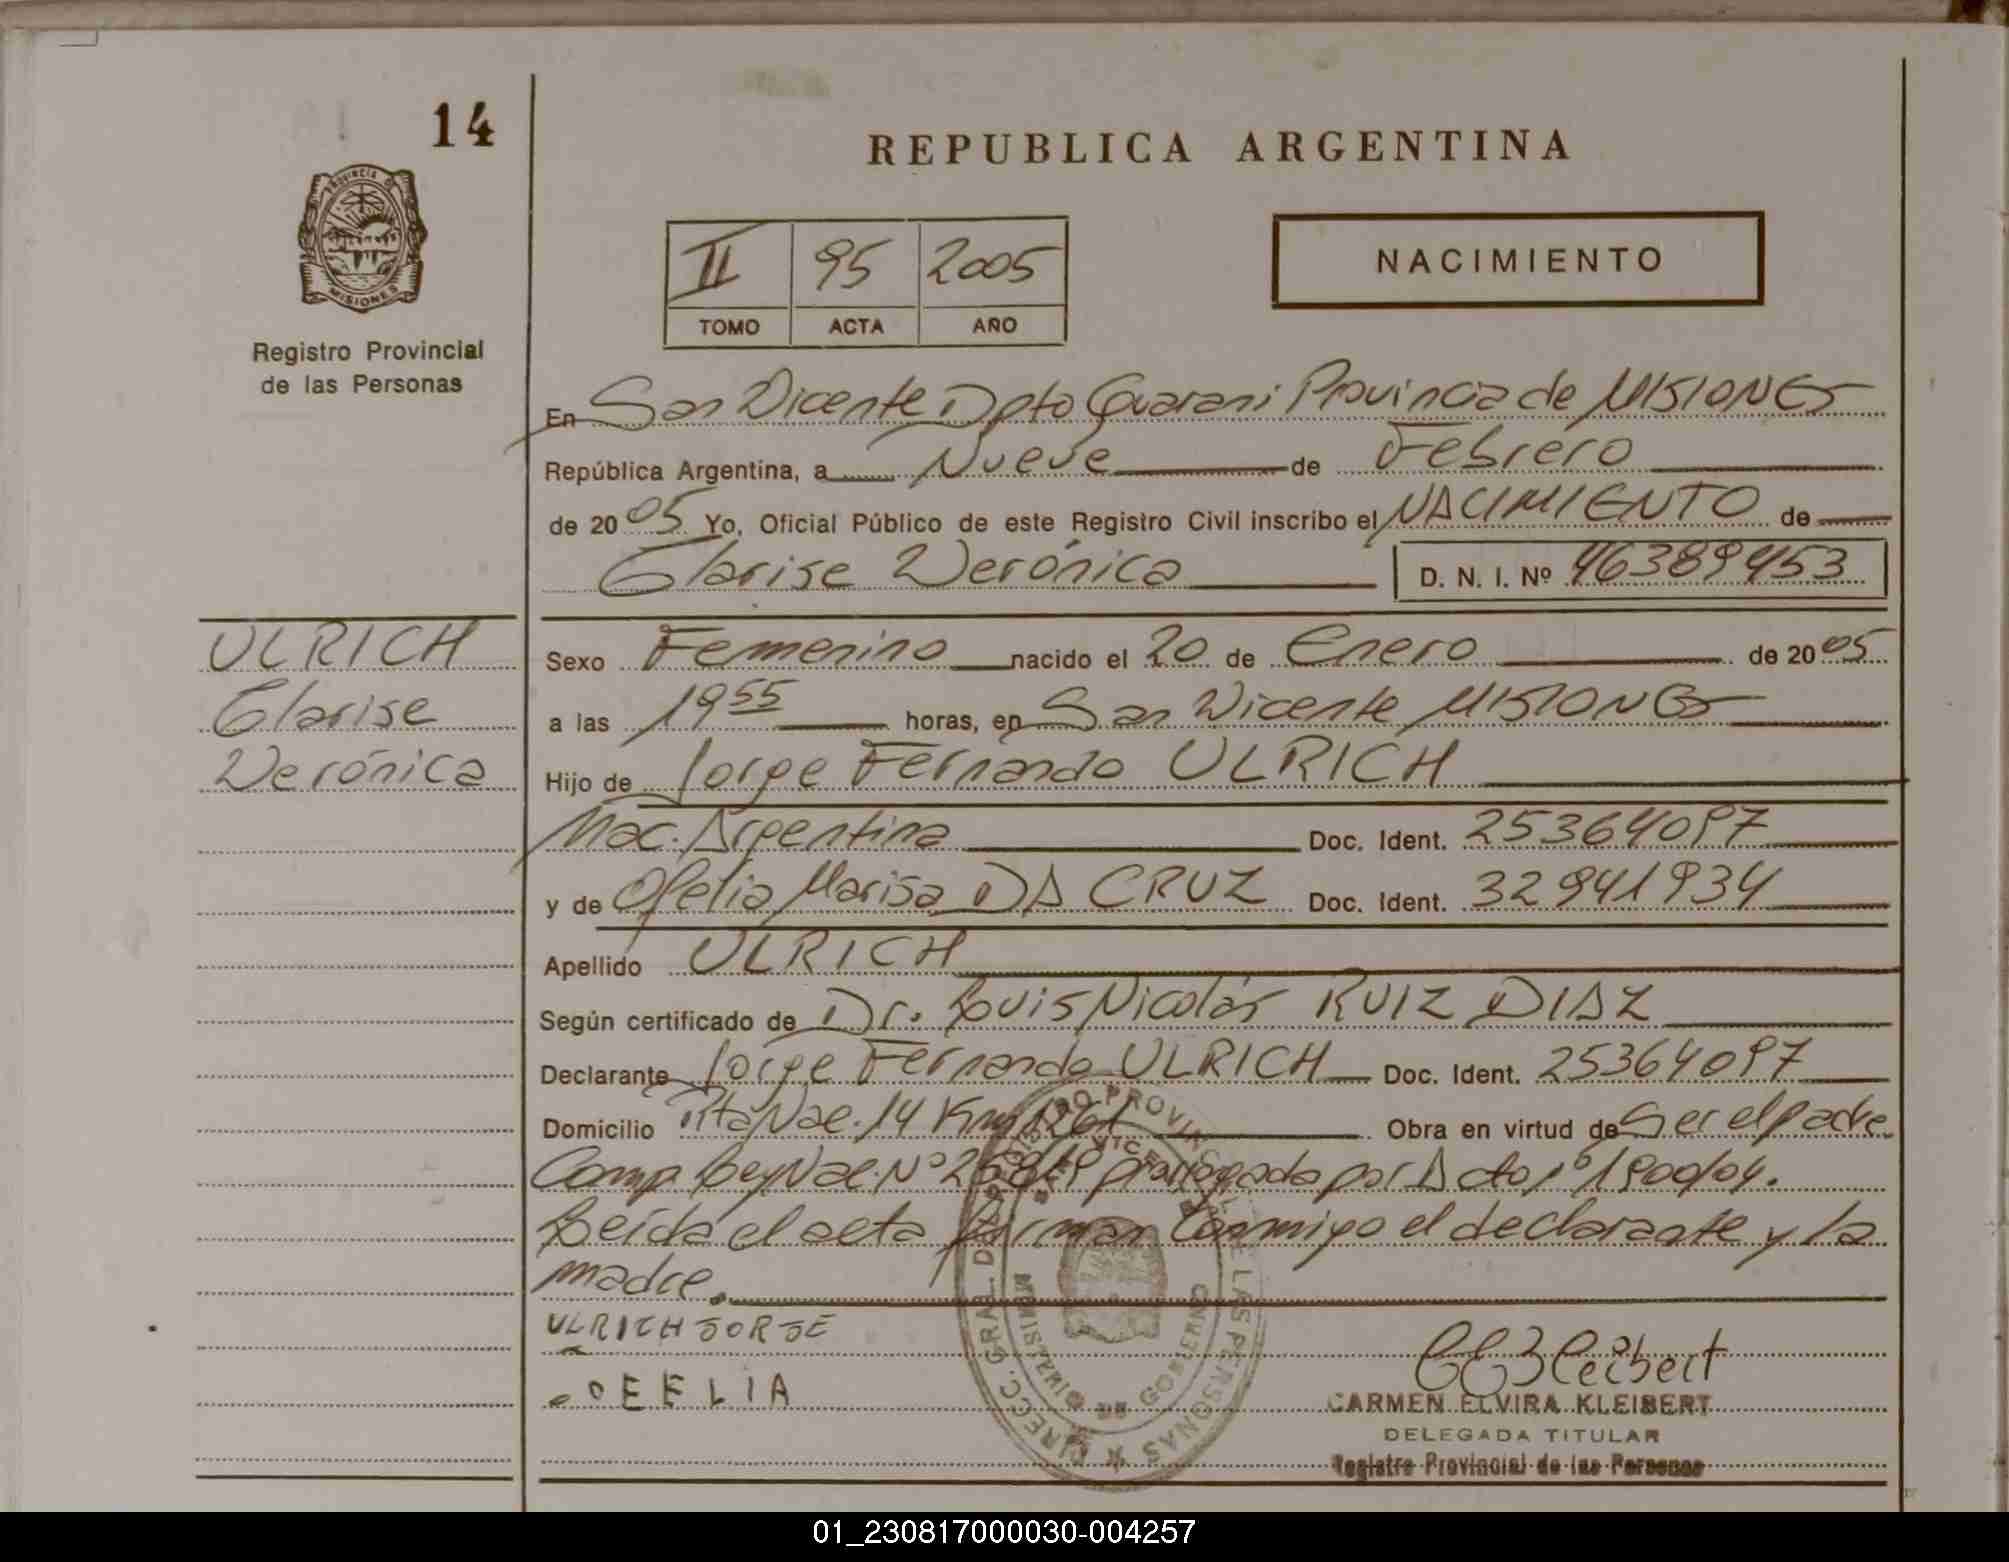 14
PROVINCIA DE
MISIONES
Registro Provincial
de las Personas
REPUBLICA ARGENTINA
II 95 2005
TOMO ACTA AÑO
NACIMIENTO
En San Vicente Dpto Guarani Provincia de MISIONES
República Argentina, a Nueve de Febrero
de 2005 Yo, Oficial Público de este Registro Civil inscribo el NACIMIENTO de
Glarise Verónica D. N. I. Nº 46389453
ULRICH
Glarise
Verónica
Sexo Femenino nacido el 20 de Enero de 2005
a las 19 55 horas, en San Vicente MISIONES
Hijo de Jorge Fernando ULRICH
Nac. Argentina Doc. Ident. 25364097
y de Ofelia Marisa DA CRUZ Doc. Ident. 32941934
Apellido ULRICH
Según certificado de Dr. Luis Nicolás RUIZ DIAZ
Declarante Jorge Fernando ULRICH Doc. Ident. 25364097
Domicilio Rta Nac. 14 Km 1261 Obra en virtud de Ser el padre
Comp. Ley Nac. Nº 25819 prorrogada por Dcto nº 1900/04.
Leída el acta firman conmigo el declarante y la
madre.
ULRICH JORJE
OFELIA
CEKleibert
CARMEN ELVIRA KLEIBERT
DELEGADA TITULAR
Registro Provincial de las Personas
DIRECC. GRAL. DEL REGISTRO PROVINCIAL DE LAS PERSONAS
MINISTERIO DE GOBIERNO
01_230817000030-004257